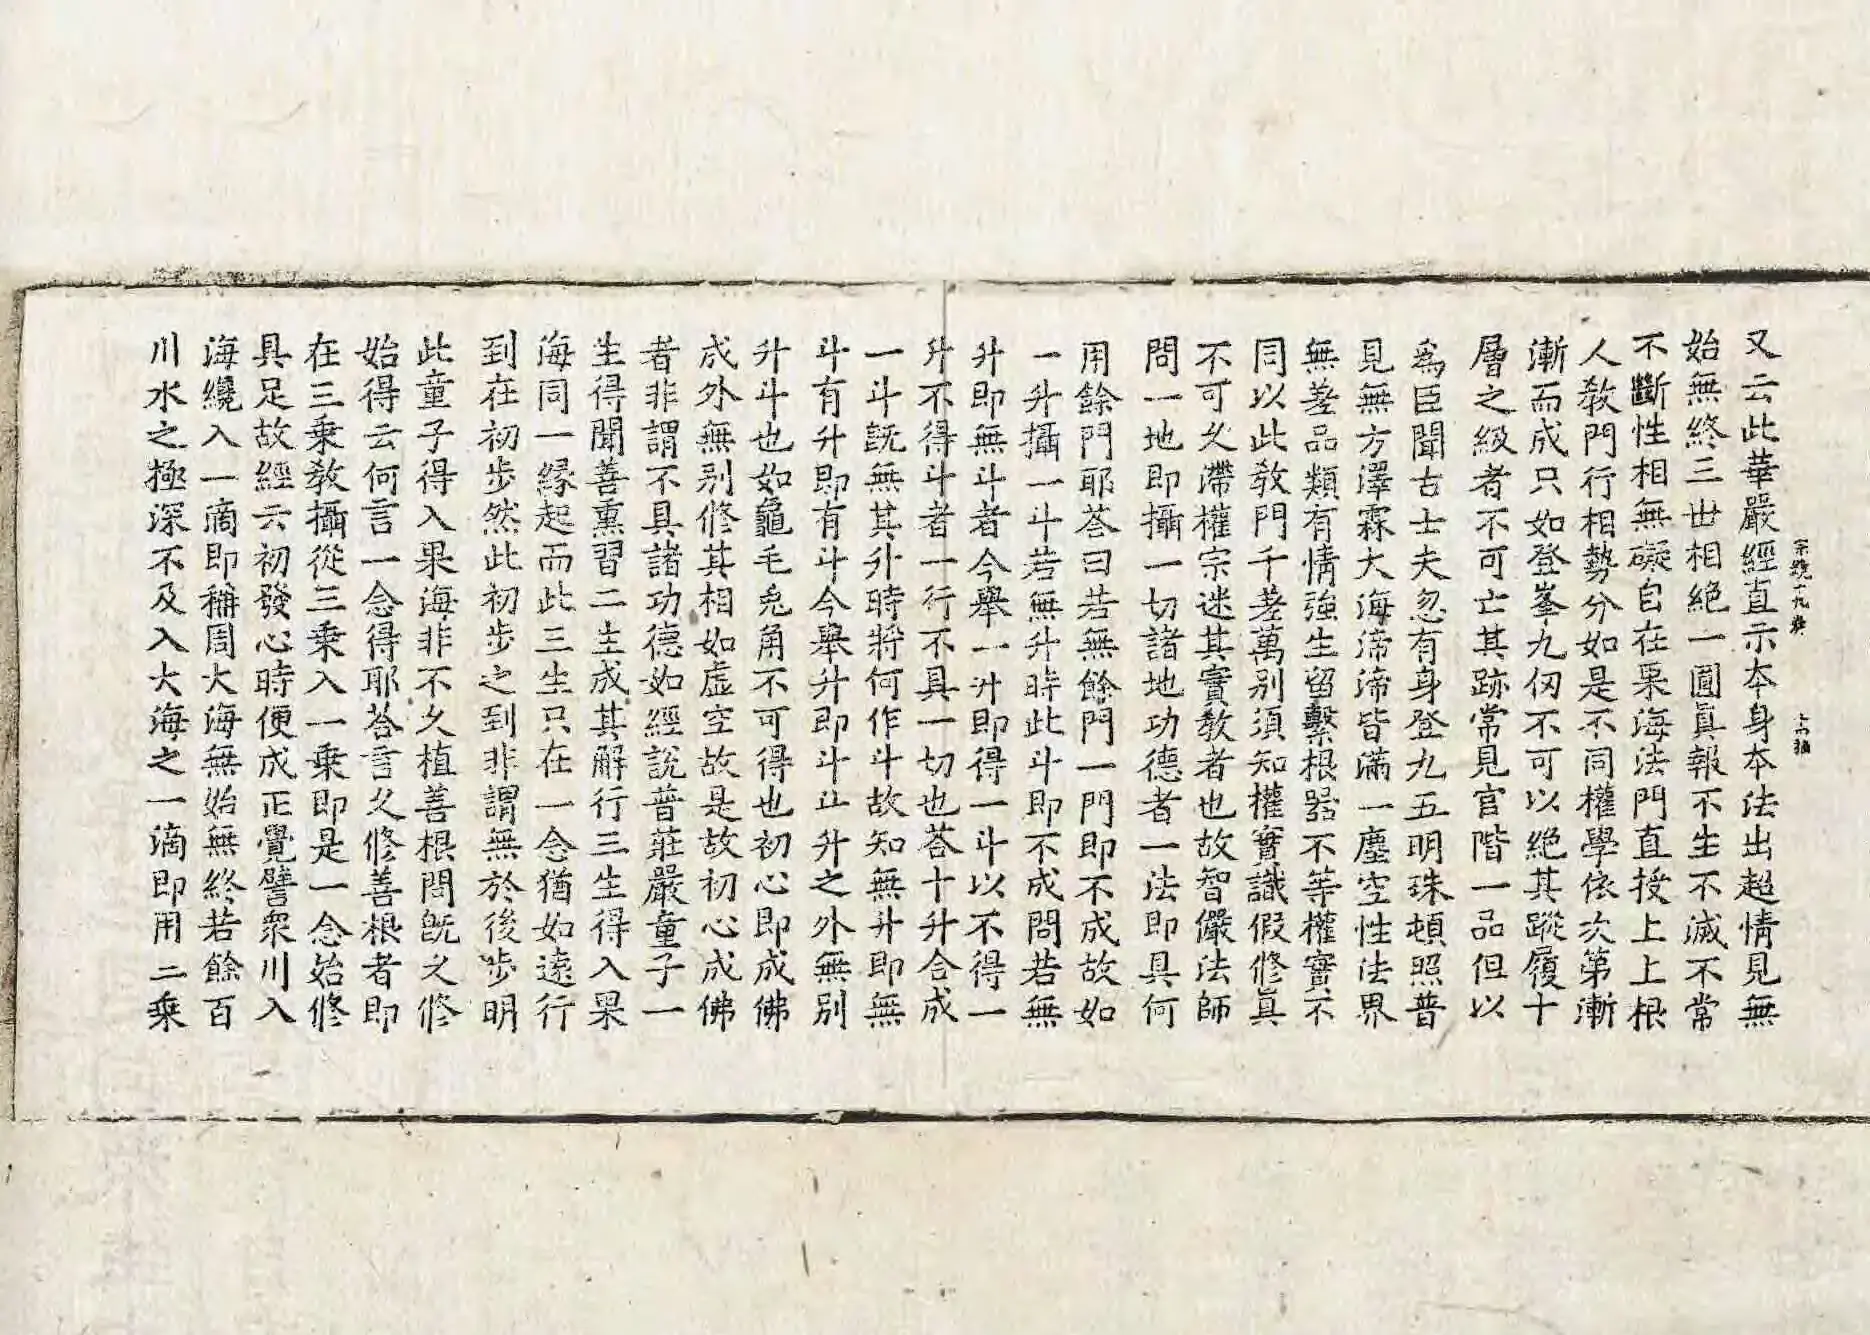 又云此華嚴經直示本身本法出超情見無
始無終三世相絶一圓眞報不生不滅不常
不斷性相無礙自在果海法門直授上上根
人教門行相勢分如是不同權學依次第漸
漸而成只如登峯九仞不可以絶其蹤履十
層之級者不可亡其跡常見官階一品但以
爲臣聞古士夫忽有身登九五明珠頓照普
見無方澤霖大海渧渧皆滿一塵空性法界
無差品類有情強生留繫根器不等權實不
同以此教門千差萬别須知權實識假修眞
不可久滯權宗迷其實教者也故智儼法師
問一地即攝一切諸地功德者一法即具何
用餘門耶荅曰若無餘門一門即不成故如
一升攝一斗若無升時此斗即不成問若無
升即無斗者今舉一升即得一斗以不得一
升不得斗者一行不具一切也荅十升合成
一斗旣無其升時將何作斗故知無升即無
斗有升即有斗今舉升即斗斗升之外無別
升斗也如龜毛兎角不可得也初心即成佛
成外無别修其相如虚空故是故初心成佛
者非謂不具諸功德如經說普莊嚴童子一
生得聞善熏習二生成其解行三生得入果
海同一緣起而此三生只在一念猶如遠行
到在初步然此初步之到非謂無於後步明
此童子得入果海非不久植善根問旣久修
始得云何言一念得耶荅言久修善根者即
在三乘教攝從三乘入一乘即是一念始修
具足故經云初發心時便成正覺譬衆川入
海纔入一滴即稱周大海無始無終若餘百
川水之極深不及入大海之一滴即用二乘